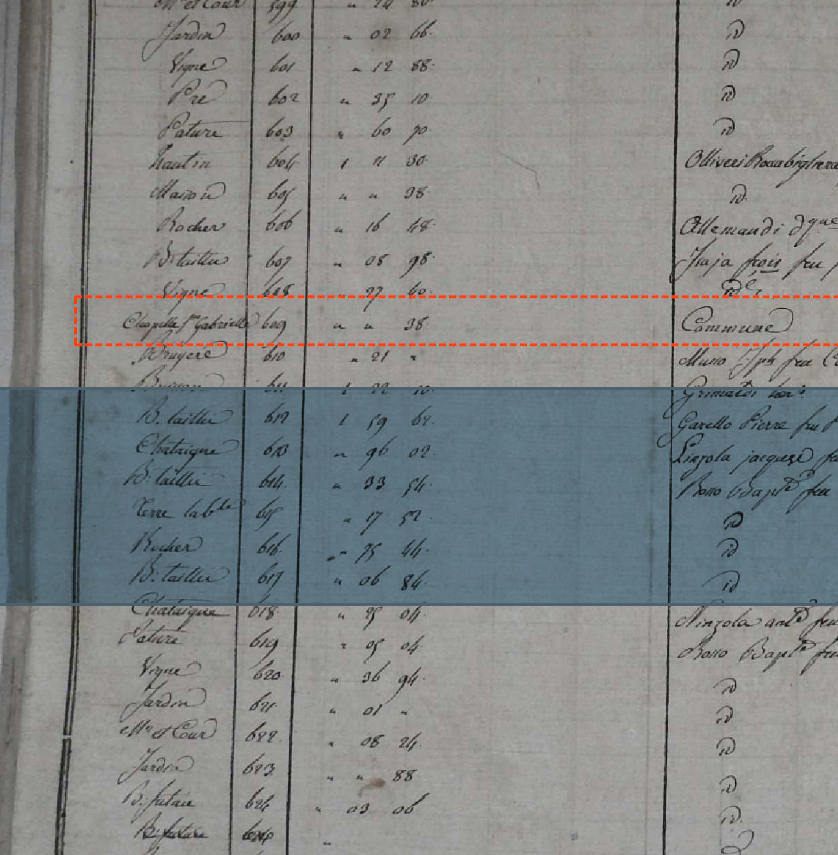 Mon et Cour 599 " 24 80
Jardin 600 " 02 66 id
Vigne 601 " 12 88 id
Pré 602 " 35 10 id
Pature 603 " 60 70 id
hautin 604 1 11 30 Olliveri
Maison 605 " " 38 id
Rocher 606 " 16 48 Allemandi dque
B. taillis 607 " 08 98 feu
Vigne 608 " 27 60 id
Chapelle St Gabrielle 609 " " 38 Commune
Bruyere 610 " 21 " Musso Jph feu
611 1 22 10 Grimaldi
B. taillis 612 1 59 62 Garello Pierre feu
Chataigne 613 " 96 02 Linzola jacques
B. taillis 614 " 33 54 Bosso Bapt feu
Terre lable 615 " 17 52 id
Rocher 616 " 75 44 id
B. taillis 617 " 06 84 id
Chataigne 618 " 25 04 Ninzola ant feu
Pature 619 " 05 04 Bosso Bapt feu
Vigne 620 " 36 94 id
Jardin 621 " 01 " id
Mon et Cour 622 " 08 24 id
Jardin 623 " " 88 id
B. futaie 624 " 03 06 id
B. futaie "